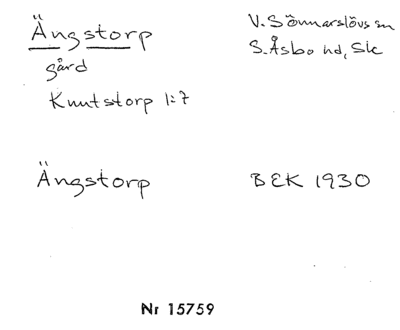 Ängstorp V. Sönnarslövs sn
gård S. Åsbo hd, Sk
Knutstorp 1:7
Ängstorp BEK 1930
Nr 15759